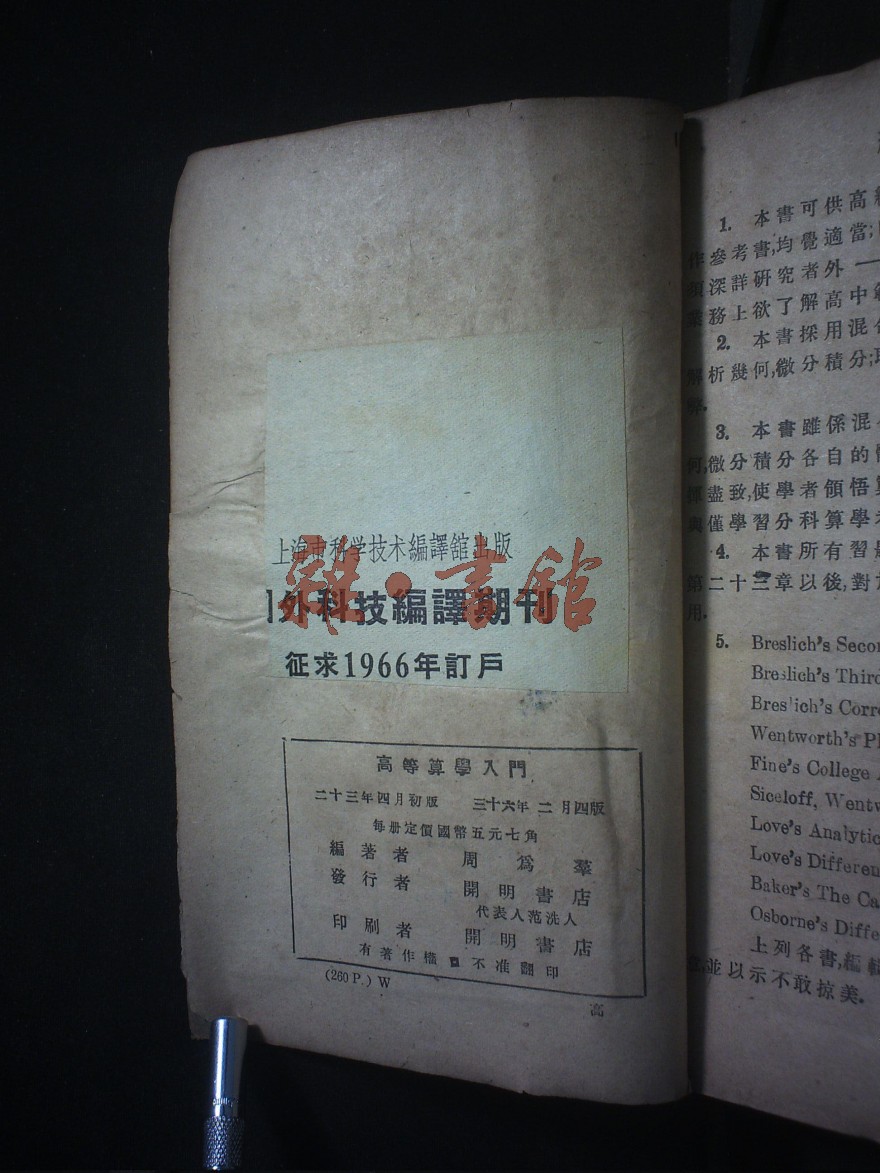 上海市科学技术編譯舘出版
外科技編譯期刊
征求1966年訂戶
雜·書舘
高等算學入門
二十三年四月初版 三十六年二月四版
每册定價國幣五元七角
編著者 周爲羣
發行者 開明書店
代表人范洗人
印刷者 開明書店
有著作權 不准翻印
(260 P.) W
高
1. 本書可供高
作參考書,均覺適當;
須深詳研究者外——
業務上欲了解高中
2. 本書採用混
解析幾何,微分積分;
弊.
3. 本書雖係混
何,微分積分各自的
盡致,使學者領悟
與僅學習分科算學
4. 本書所有習
第二十三章以後,對
用.
5. Breslich's Secon
Breslich's Third
Breslich's Corre
Wentworth's Pl
Fine's College
Siceloff, Wentw
Love's Analytic
Love's Differen
Baker's The Ca
Osborne's Diffe
上列各書,編輯
並以示不敢掠美.